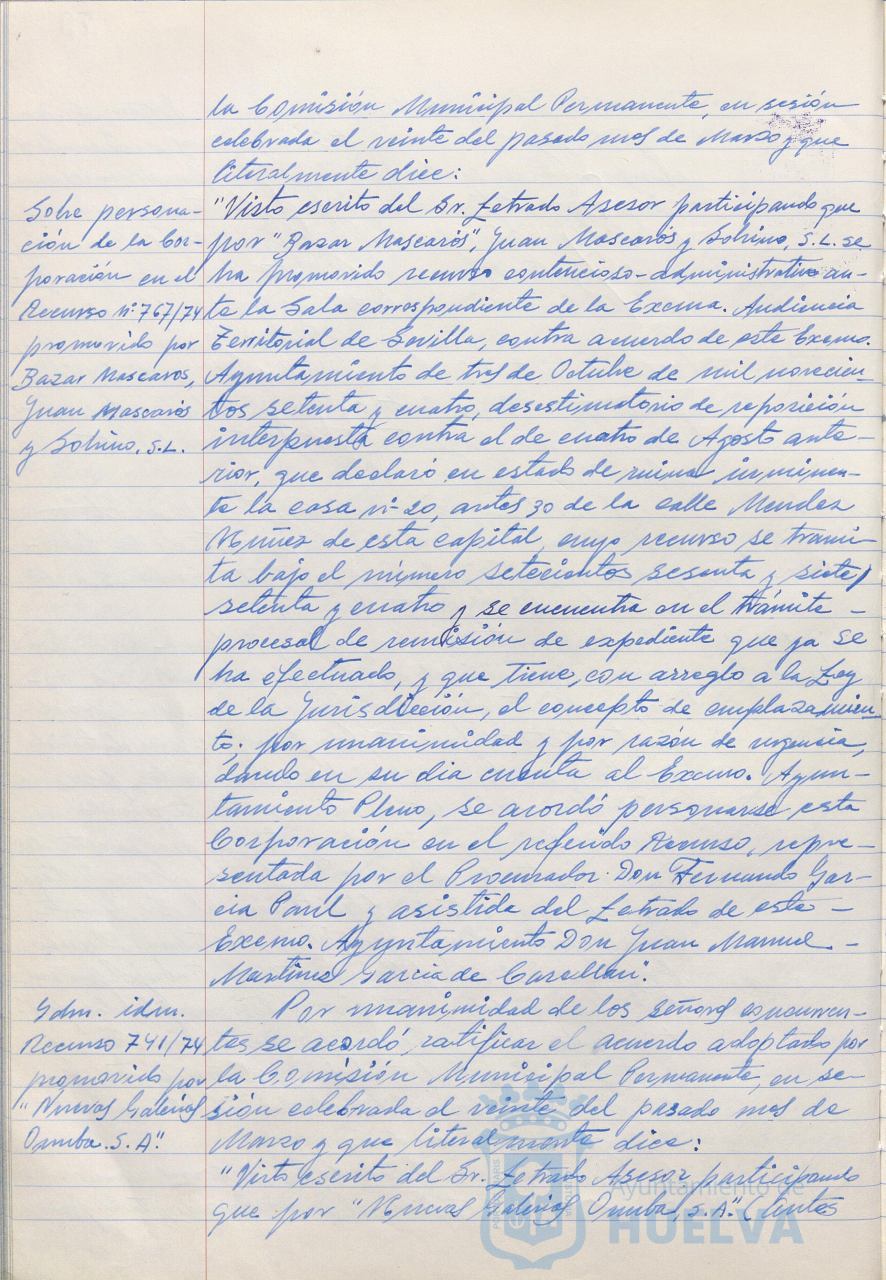 la Comisión Municipal Permanente, en sesión
celebrada el veinte del pasado mes de Marzo y que
literalmente dice:
Sobre persona-
ción de la Cor-
poración en el
Recurso nº 767/74
promovido por
Bazar Mascarós,
Juan Mascarós
y Sobrino, S.L.
"Visto escrito del Sr. Letrado Asesor participando que
por "Bazar Mascarós", Juan Mascarós y Sobrino, S.L. se
ha promovido recurso contencioso-administrativo an-
te la Sala correspondiente de la Excma. Audiencia
Territorial de Sevilla, contra acuerdo de este Excmo.
Ayuntamiento de tres de Octubre de mil novecien-
tos setenta y cuatro, desestimatorio de reposición
interpuesta contra el de cuatro de Agosto ante-
rior, que declaró en estado de ruina inminen-
te la casa nº 20, antes 30 de la calle Mendez
Núñez de esta capital, cuyo recurso se trami-
ta bajo el número setecientos sesenta y siete/
setenta y cuatro y se encuentra en el trámite -
procesal de remisión de expediente que ya se
ha efectuado, y que tiene, con arreglo a la Ley
de la Jurisdicción, el concepto de emplazamien-
to; por unanimidad y por razón de urgencia,
dando en su dia cuenta al Excmo. Ayun-
tamiento Pleno, se acordó personarse esta
Corporación en el referido Recurso, repre-
sentada por el Procurador Don Fernando Gar-
cia Paril y asistida del Letrado de este -
Excmo. Ayuntamiento Don Juan Manuel -
Martinez Garcia de
Idm. idm.
Recurso 741/74
promovido por
"Nuevas Galerias
Onuba. S.A".
Por unanimidad de los señores concurren-
tes se acordó ratificar el acuerdo adoptado por
la Comisión Municipal Permanente, en se-
sión celebrada el veinte del pasado mes de
Marzo y que literalmente dice:
"Visto escrito del Sr. Letrado Asesor participando
que por "Nuevas Galerias Onuba, S.A". (antes
Ayuntamiento de
HUELVA